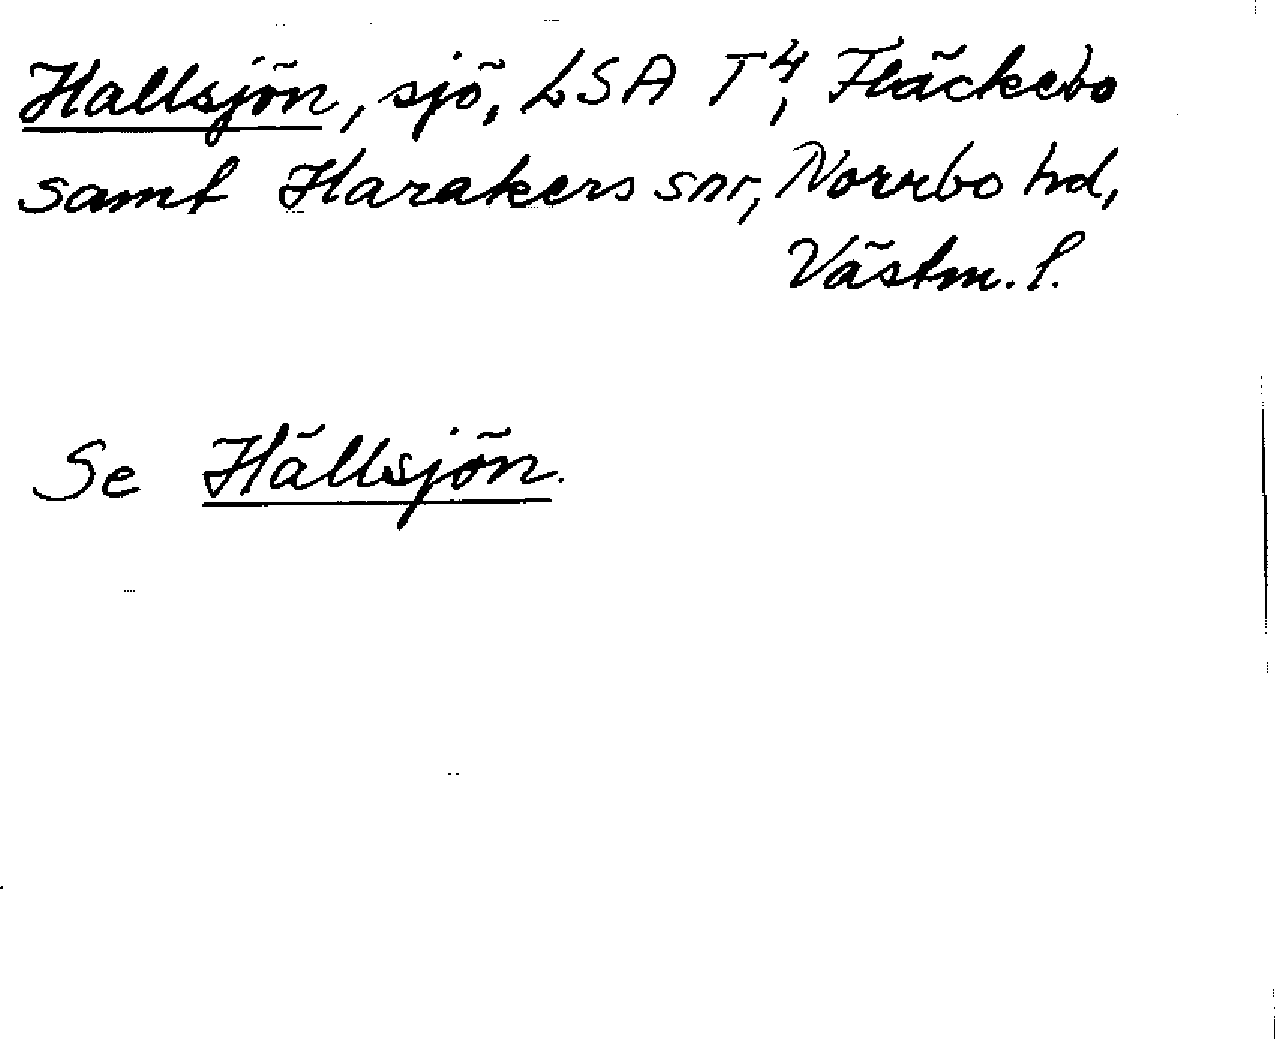 Hallsjön, sjö, LSA T4, Fläckebo
samt Harakers snr, Norrbo hd,
Västm. l.
Se Hällsjön.